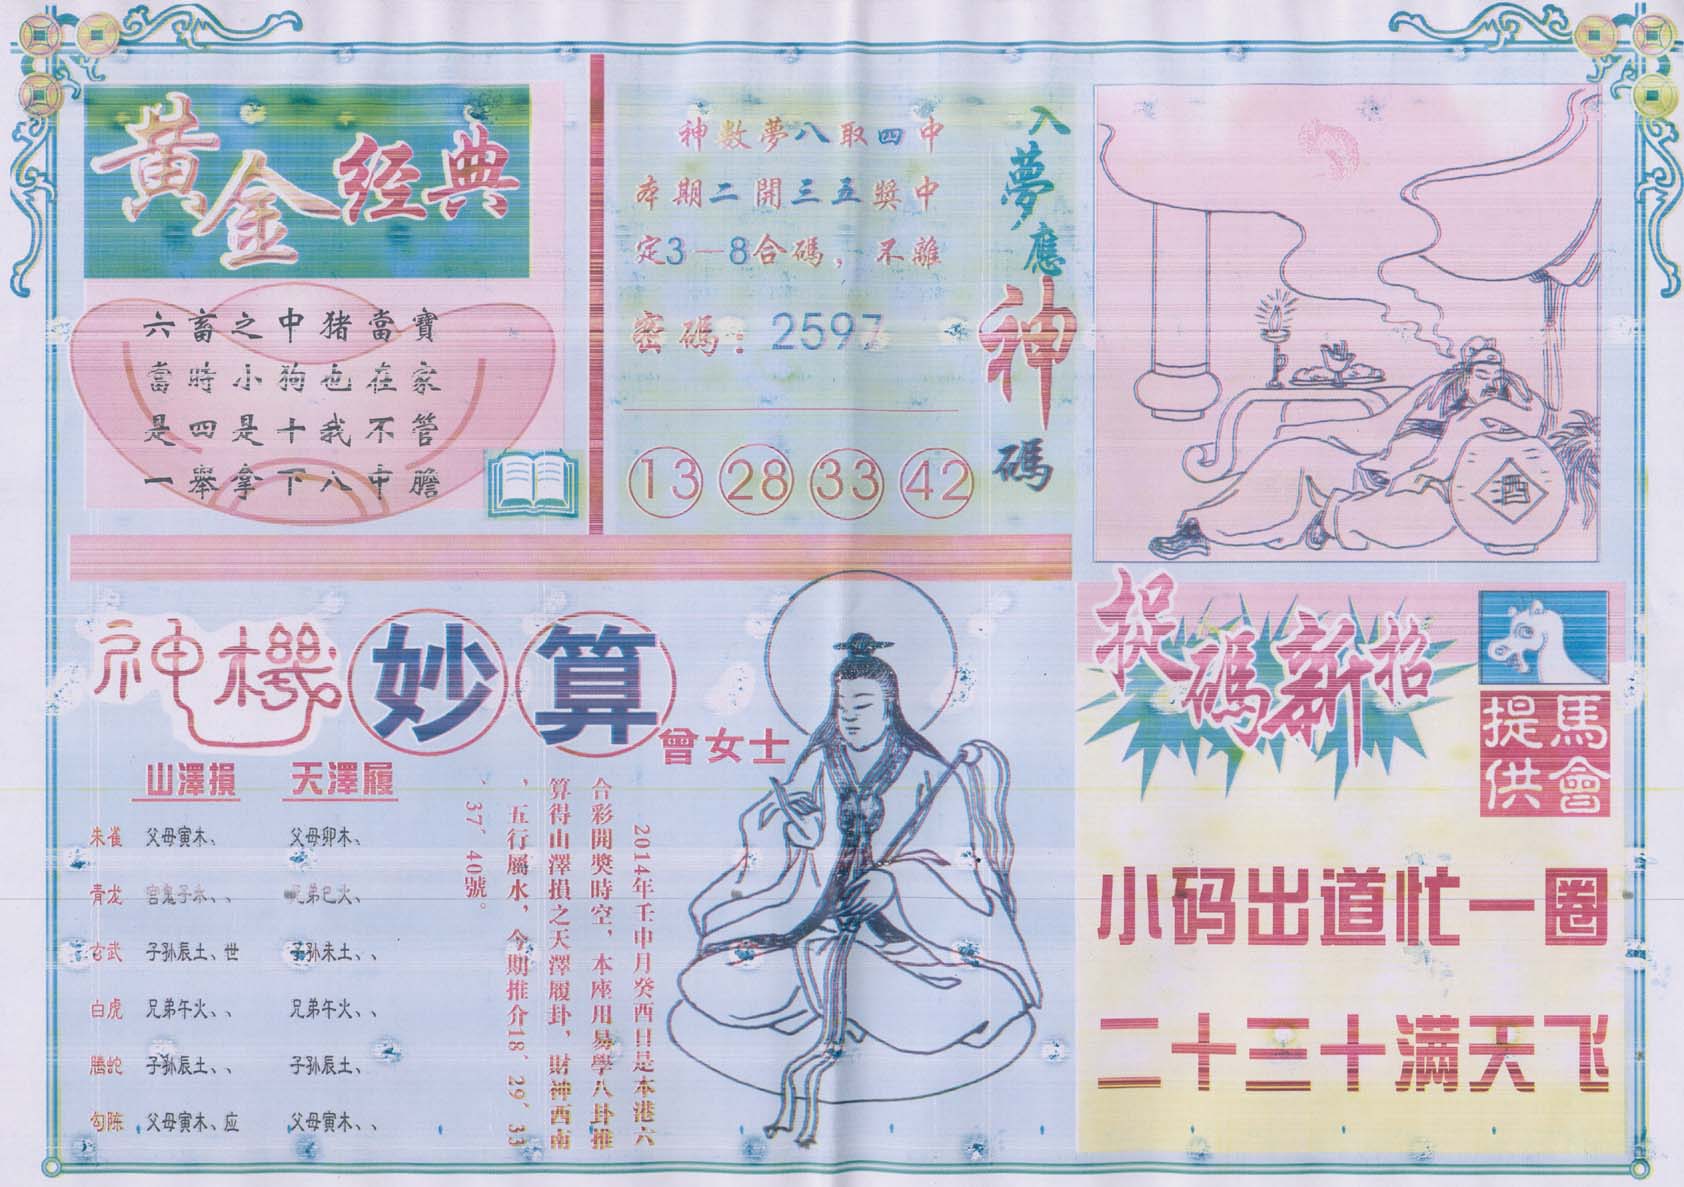 黄金经典
六畜之中猪當寶
當時小狗也在家
是四是十我不管
一舉拿下八中膽
入夢應神碼
神數夢八取四中
本期二開三五獎中
定3—8合碼，不離
密碼：2597
13 28 33 42
酒
神機妙算
曾女士
山澤損 天澤履
朱雀 父母寅木、 父母卯木、
青龙 官鬼子水、、 兄弟巳火、
玄武 子孙辰土、世 子孙未土、、
白虎 兄弟午火、、 兄弟午火、、
腾蛇 子孙辰土、、 子孙辰土、
勾陈 父母寅木、应 父母寅木、、
2014年壬申月癸酉日是本港六
合彩開獎時空，本座用易學八卦推
算得山澤損之天澤履卦，財神西南
、五行屬水，今期推介18、29、33
、37、40號。
捉碼新招
馬會提供
小码出道忙一圈
二十三十满天飞